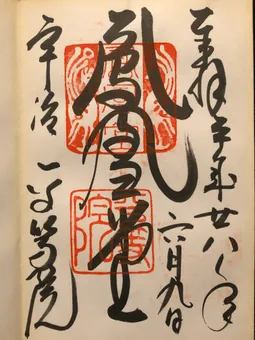 奉拝 平成廿八年
六月九日
鳳凰堂
宇治 平等院